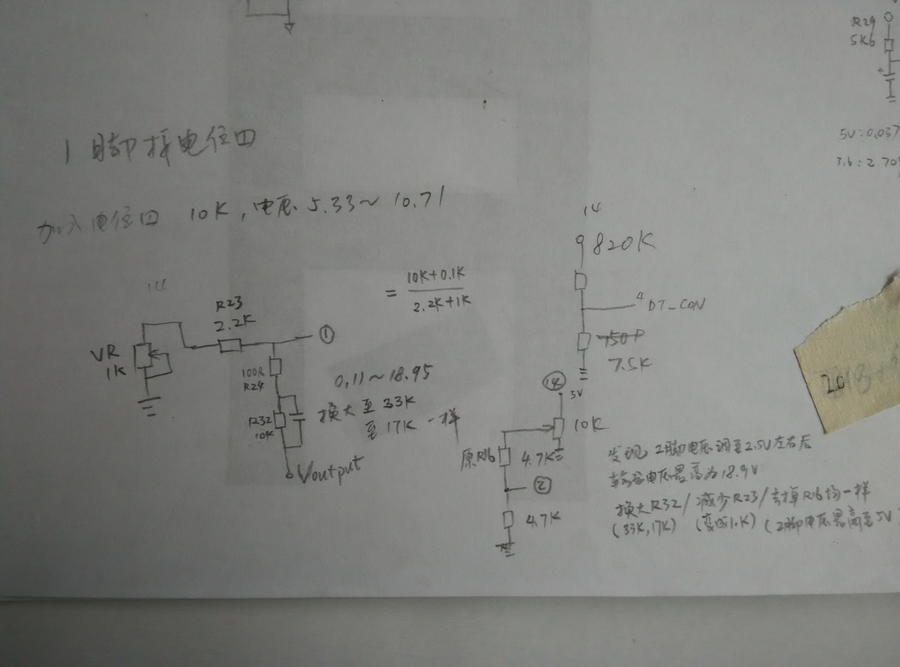 R29
5K6
1脚接电位四
5V:0.037
加入电位四 10K,电压 5.33~10.71
14
820K
10K+0.1K
= 
2.2K+1K
4 DT_CON
750P
7.5K
R23
2.2K
①
VR
1K
100R
R24
0.11~18.95
换大至33K
至17K一样
R32
10K
Voutput
⑭
5V
10K
原R16
4.7K
②
4.7K
发现 2脚电压调至2.5V左右后
输出电压最高为18.9V
换大R32/减少R23/去掉R16均一样
(33K,17K) (变成1.1K) (2脚电压最高至5V